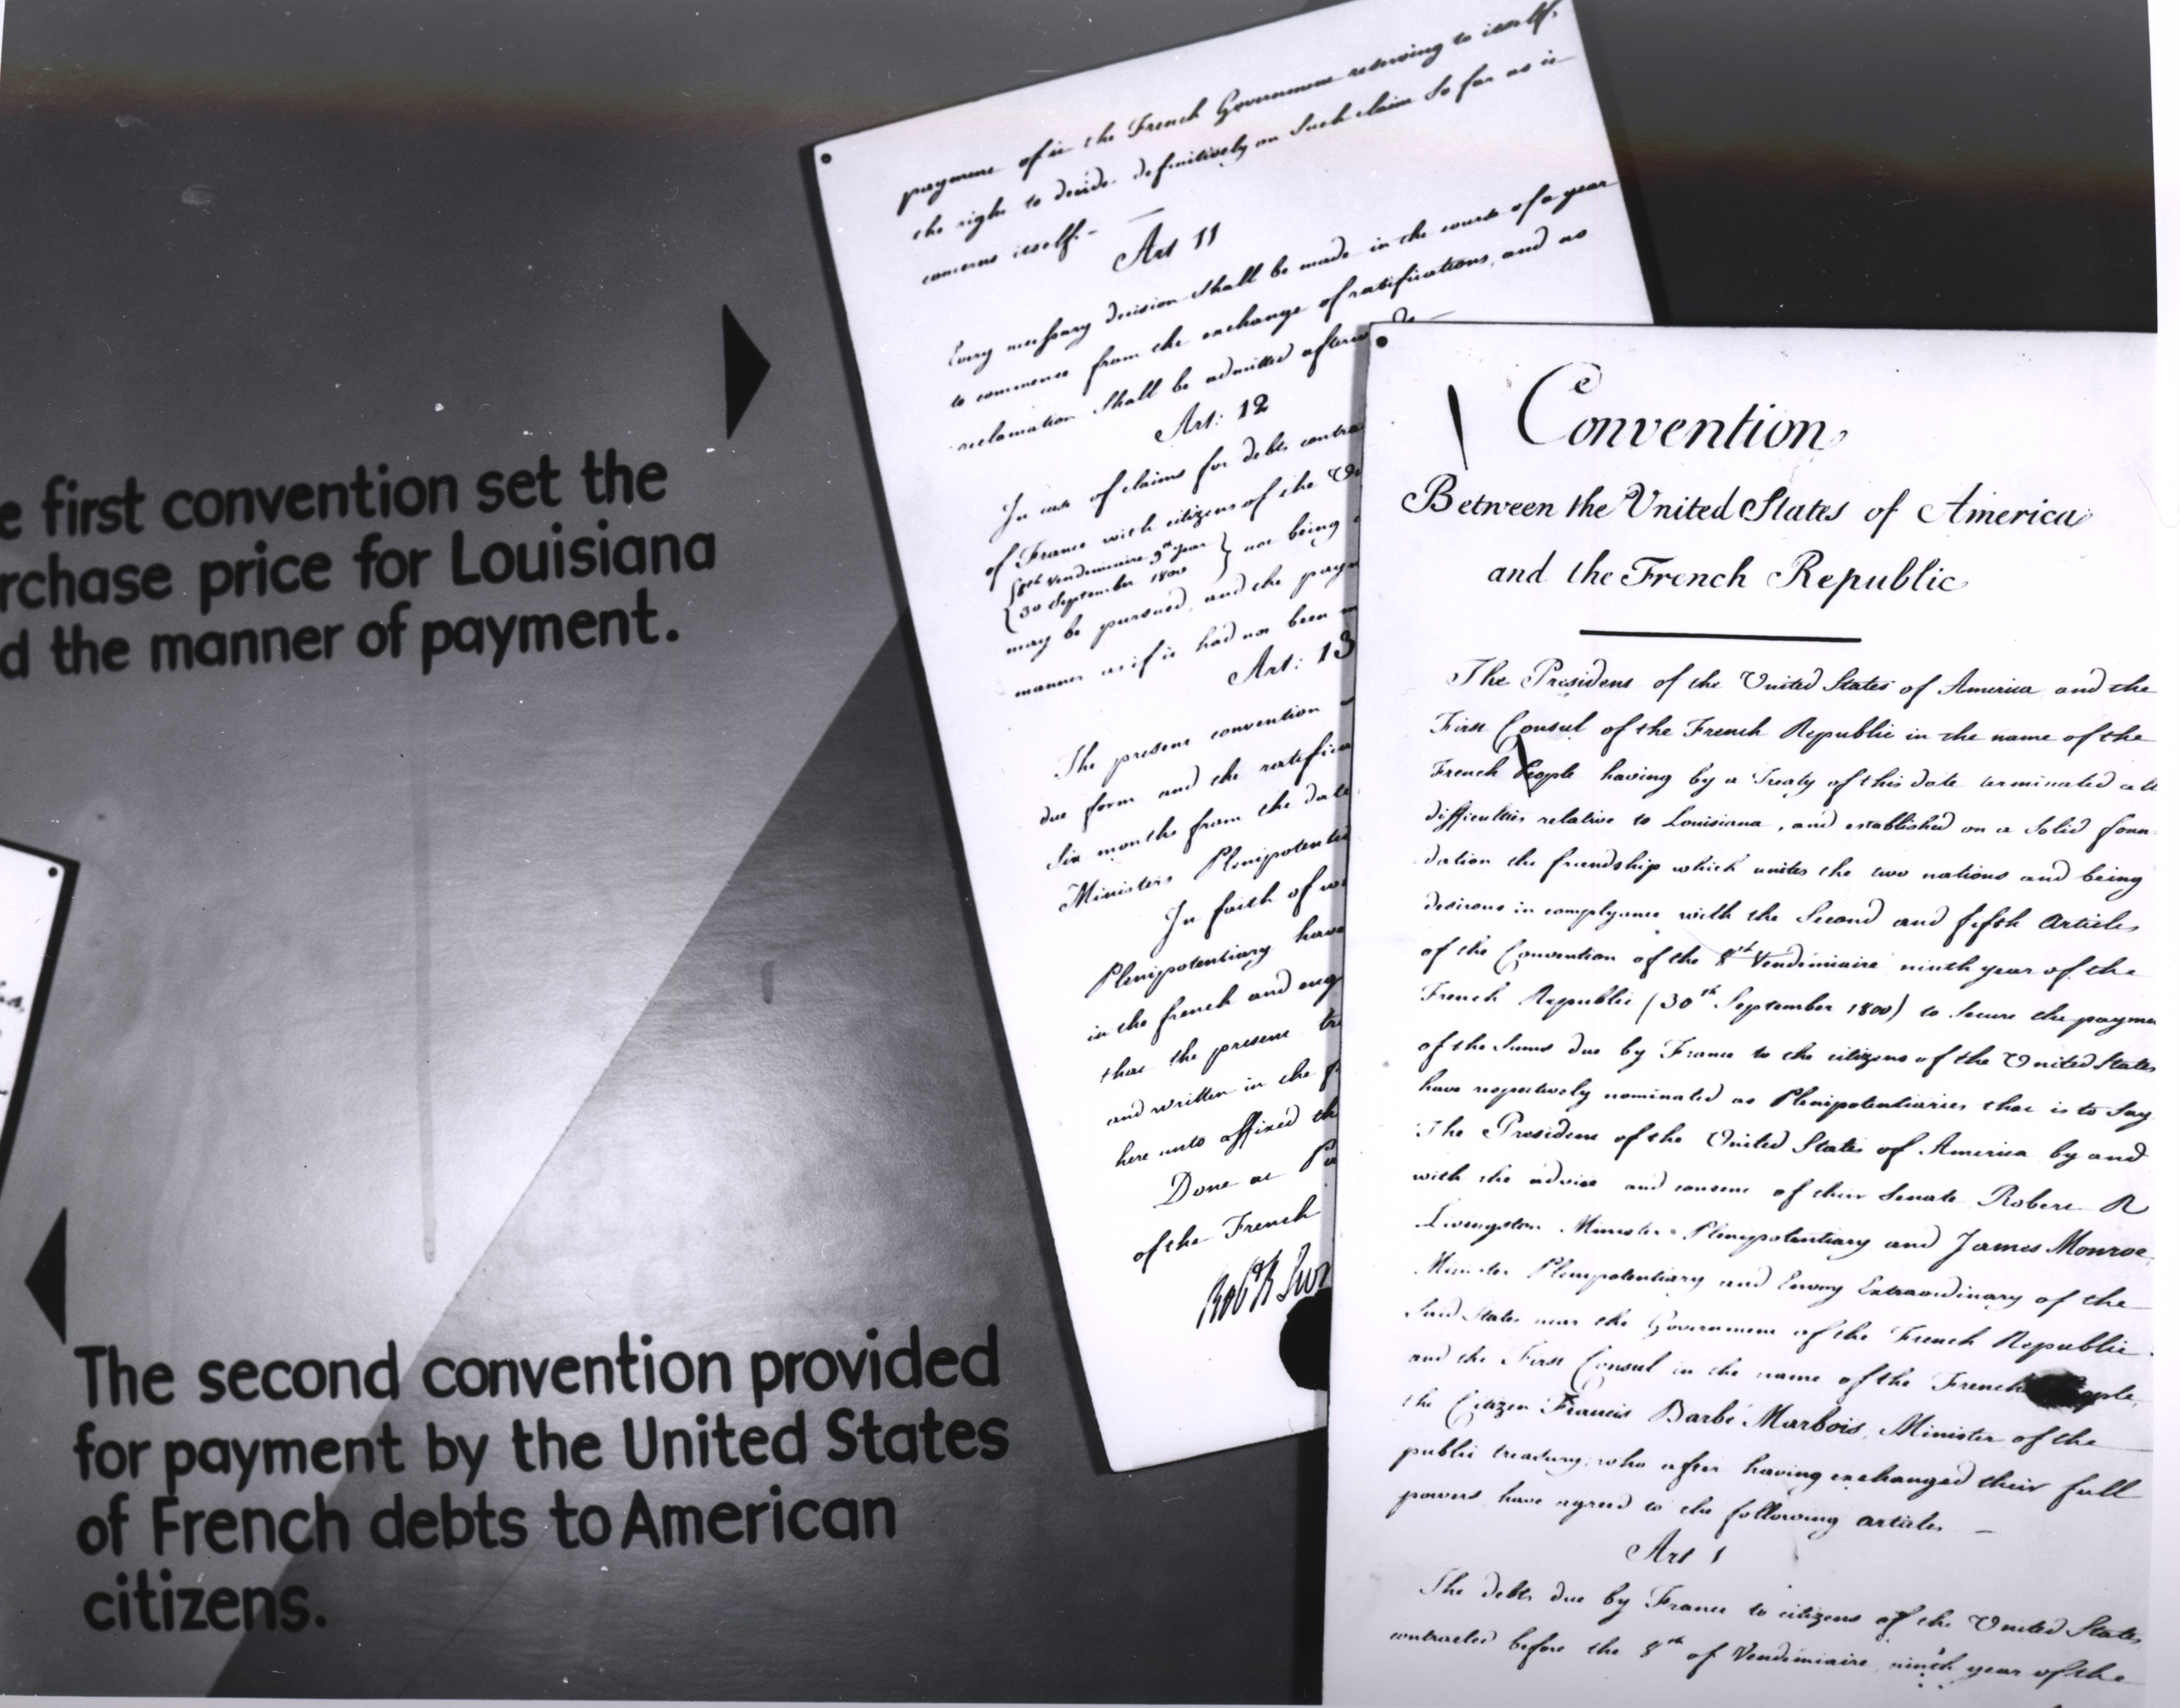 e first convention set the
rchase price for Louisiana
d the manner of payment.
The second convention provided
for payment by the United States
of French debts to American
citizens.
payment of it the French Government reserving to itself
the right to decide definitively on such claim So far as it
concerns itself.-
Art 11
Every necessary decision Shall be made in the course of a year
to commence from the exchange of ratifications, and no
reclamation Shall be admitted afterw
Art: 12
In case of claims for debts contra
of France with citizens of the Un
8th Vendemiaire 9th year
30 September 1800
not being
may be pursued, and the paym
manner as if it had not been m
Art: 13
The present convention
due form and the ratifica
Six months from the date
Ministers Plenipotentia
In faith of w
Plenipotentiary have
in the french and eng
that the present tre
and written in the f
here unto affixed the
Done at Pa
of the French
Robt R Liv
Convention
Between the United States of America
and the French Republic
The President of the United States of America and the
First Consul of the French Republic in the name of the
French People having by a Treaty of this date terminated all
difficulties relative to Louisiana, and established on a Solid foun
dation the friendship which unites the two nations and being
desirous in complyance with the Second and fifth Articles
of the Convention of the 8th Vendémiaire ninth year of the
French Republic (30th September 1800) to Secure the payme
of the Sums due by France to the citizens of the United States
have respectively nominated as Plenipotentiaries that is to Say
The President of the United States of America by and
with the advice and consent of their Senate Robert R
Livingston Minister Plenipotentiary and James Monroe
Minister Plenipotentiary and Envoy Extraordinary of the
Said States near the Government of the French Republic
and the First Consul in the name of the French People,
the Citizen Francis Barbé Marbois, Minister of the
public treasury; who after having exchanged their full
powers have agreed to the following articles —
Art 1
The debts due by France to citizens of the United States
contracted before the 8th of Vendémiaire ninth year of the